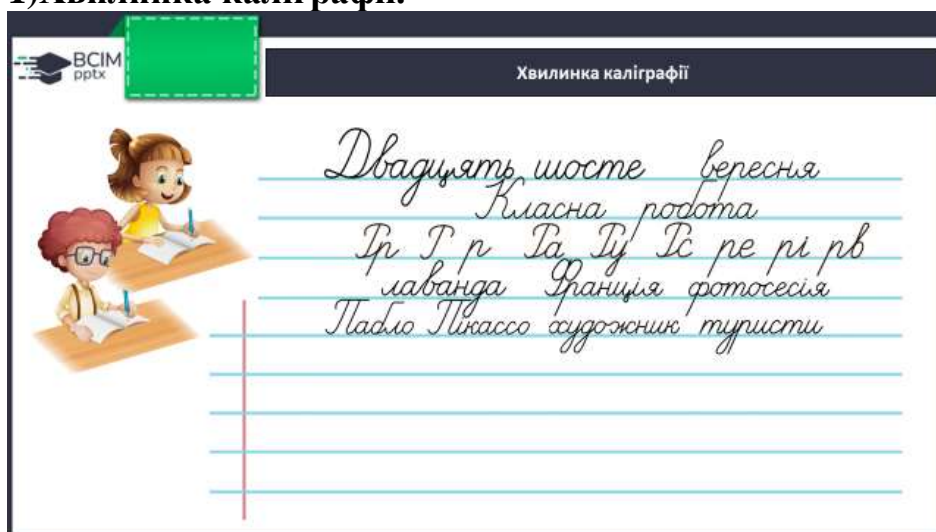 1)Хвилинка каліграфії:
ВСІМ
pptx
Хвилинка каліграфії
Двадцять шосте вересня
Класна робота
Гр Г р Га Гу Гс ре рі рв
лаванда Франція фотосесія
Пабло Пікассо художник туристи